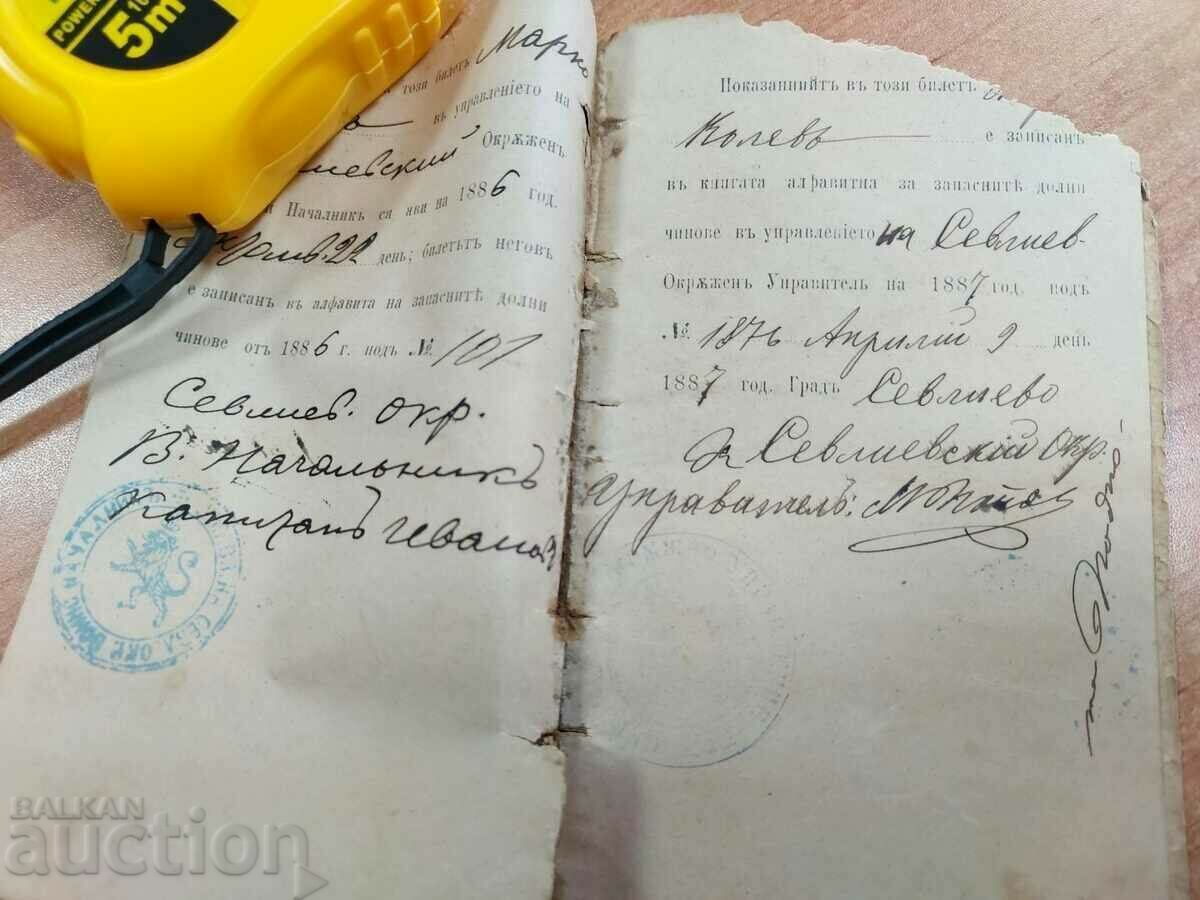 POWER
5m
този билетъ Марко
въ управлението на
Окрѫженъ
Началник ся яви на 1886 год.
22 день; билетътъ неговъ
е записанъ къ алфавита на запаснитѣ долни
чинове отъ 1886 г. подъ № 101
Севлиев. окр.
В. Началникъ
Капитанъ
Показанныйтъ въ този билетъ
Колевъ е записанъ
въ книгата алфавитна за запаснитѣ долни
чинове въ управлението на Севлиев-
Окрѫженъ Управитель на 1887 год. подъ
№ 1876 Априлий 9 день
1887 год. Градъ Севлиево
Севлиевский Окр.
Управатель:
BALKAN
auction